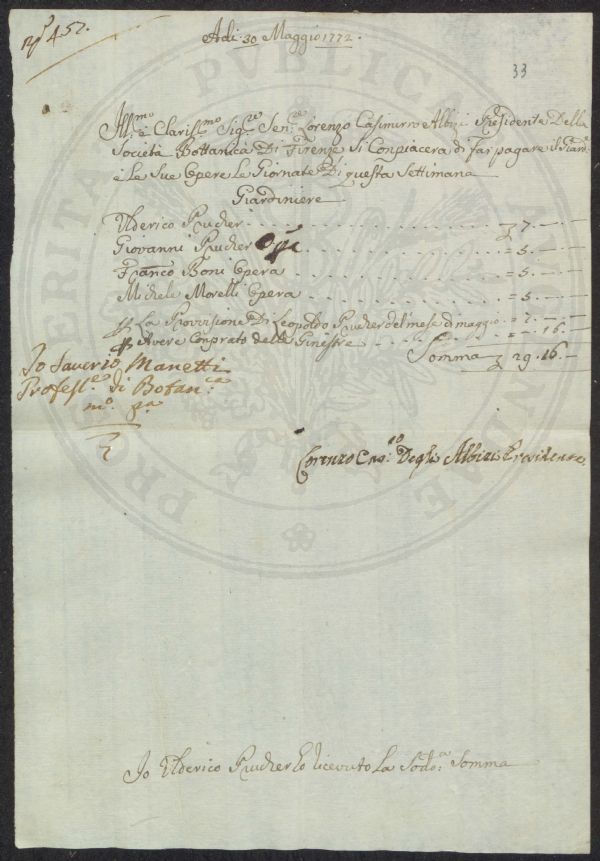 N° 452.
Adi: 30 Maggio 1772.
33
Ill:mo e Claris:mo Sig:re Sen:re Lorenzo Casimirro Albizi Presidente Della
Società Bottanica Di Firenze Si Conpiacera di fai pagare il Giard:e
e Le Sue Opere Le Giornate Di questa Settimana
Giardiniere
Ulderico Prucher . . . 7. — —
Giovanni Prucher Op:e . . . = 5. — —
Franco Boni Opera . . . = 5. — —
Michele Morelli Opera . . . = 5. — —
p La Provisione Di Leopoldo Prucher del mese di maggio = 7. — —
p Avere Conprato delle Ginestre . . . — 16. —
Somma 29. 16. —
Io Saverio Manetti
Profess:e di Botan:ca
m:o p:a
Lorenzo Cas:o Degli Albizi Presidente
Io Ulderico Prucher ho ricevuto La Sodd:a Somma
PROSPERITATI PVBLICAE AVGENDAE